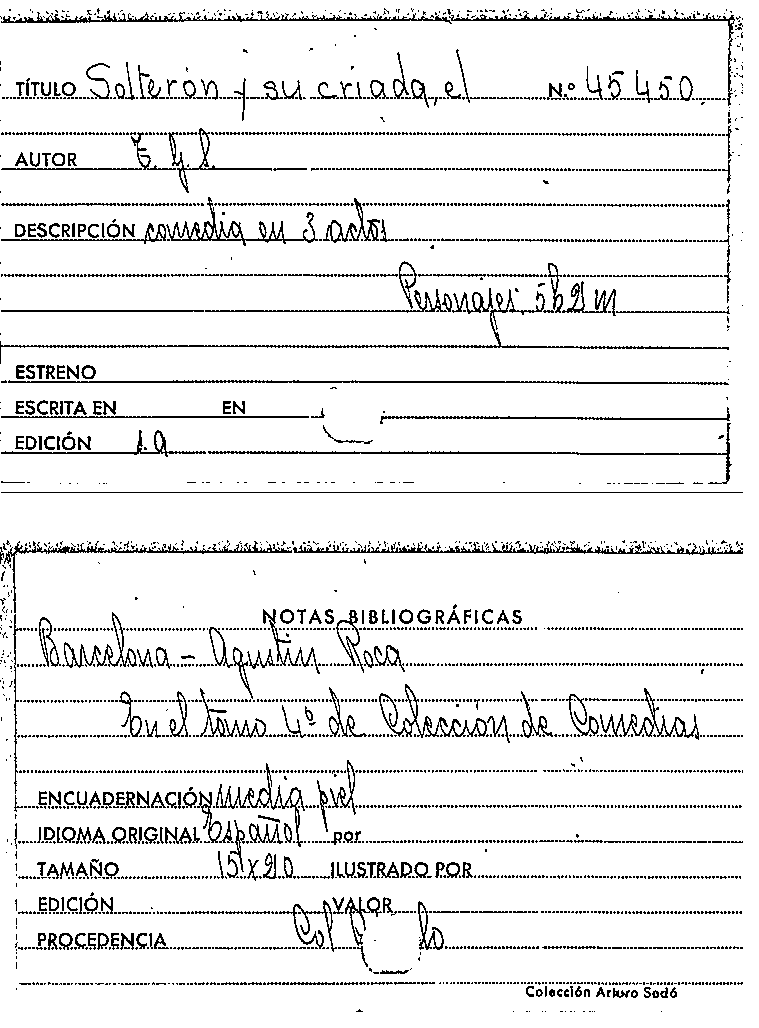 TÍTULO Solterón y su criada, el N.º 45450
AUTOR E. G. S.
DESCRIPCIÓN comedia en 3 actos
Personajes. 5h 2 m
ESTRENO
ESCRITA EN EN
EDICIÓN 1.a
NOTAS BIBLIOGRÁFICAS
Barcelona - Agustín Roca
En el tomo 4º de Colección de Comedias
ENCUADERNACIÓN media piel
IDIOMA ORIGINAL Español por
TAMAÑO 15 x 20 ILUSTRADO POR
EDICIÓN VALOR
PROCEDENCIA Col
Colección Arturo Sedó